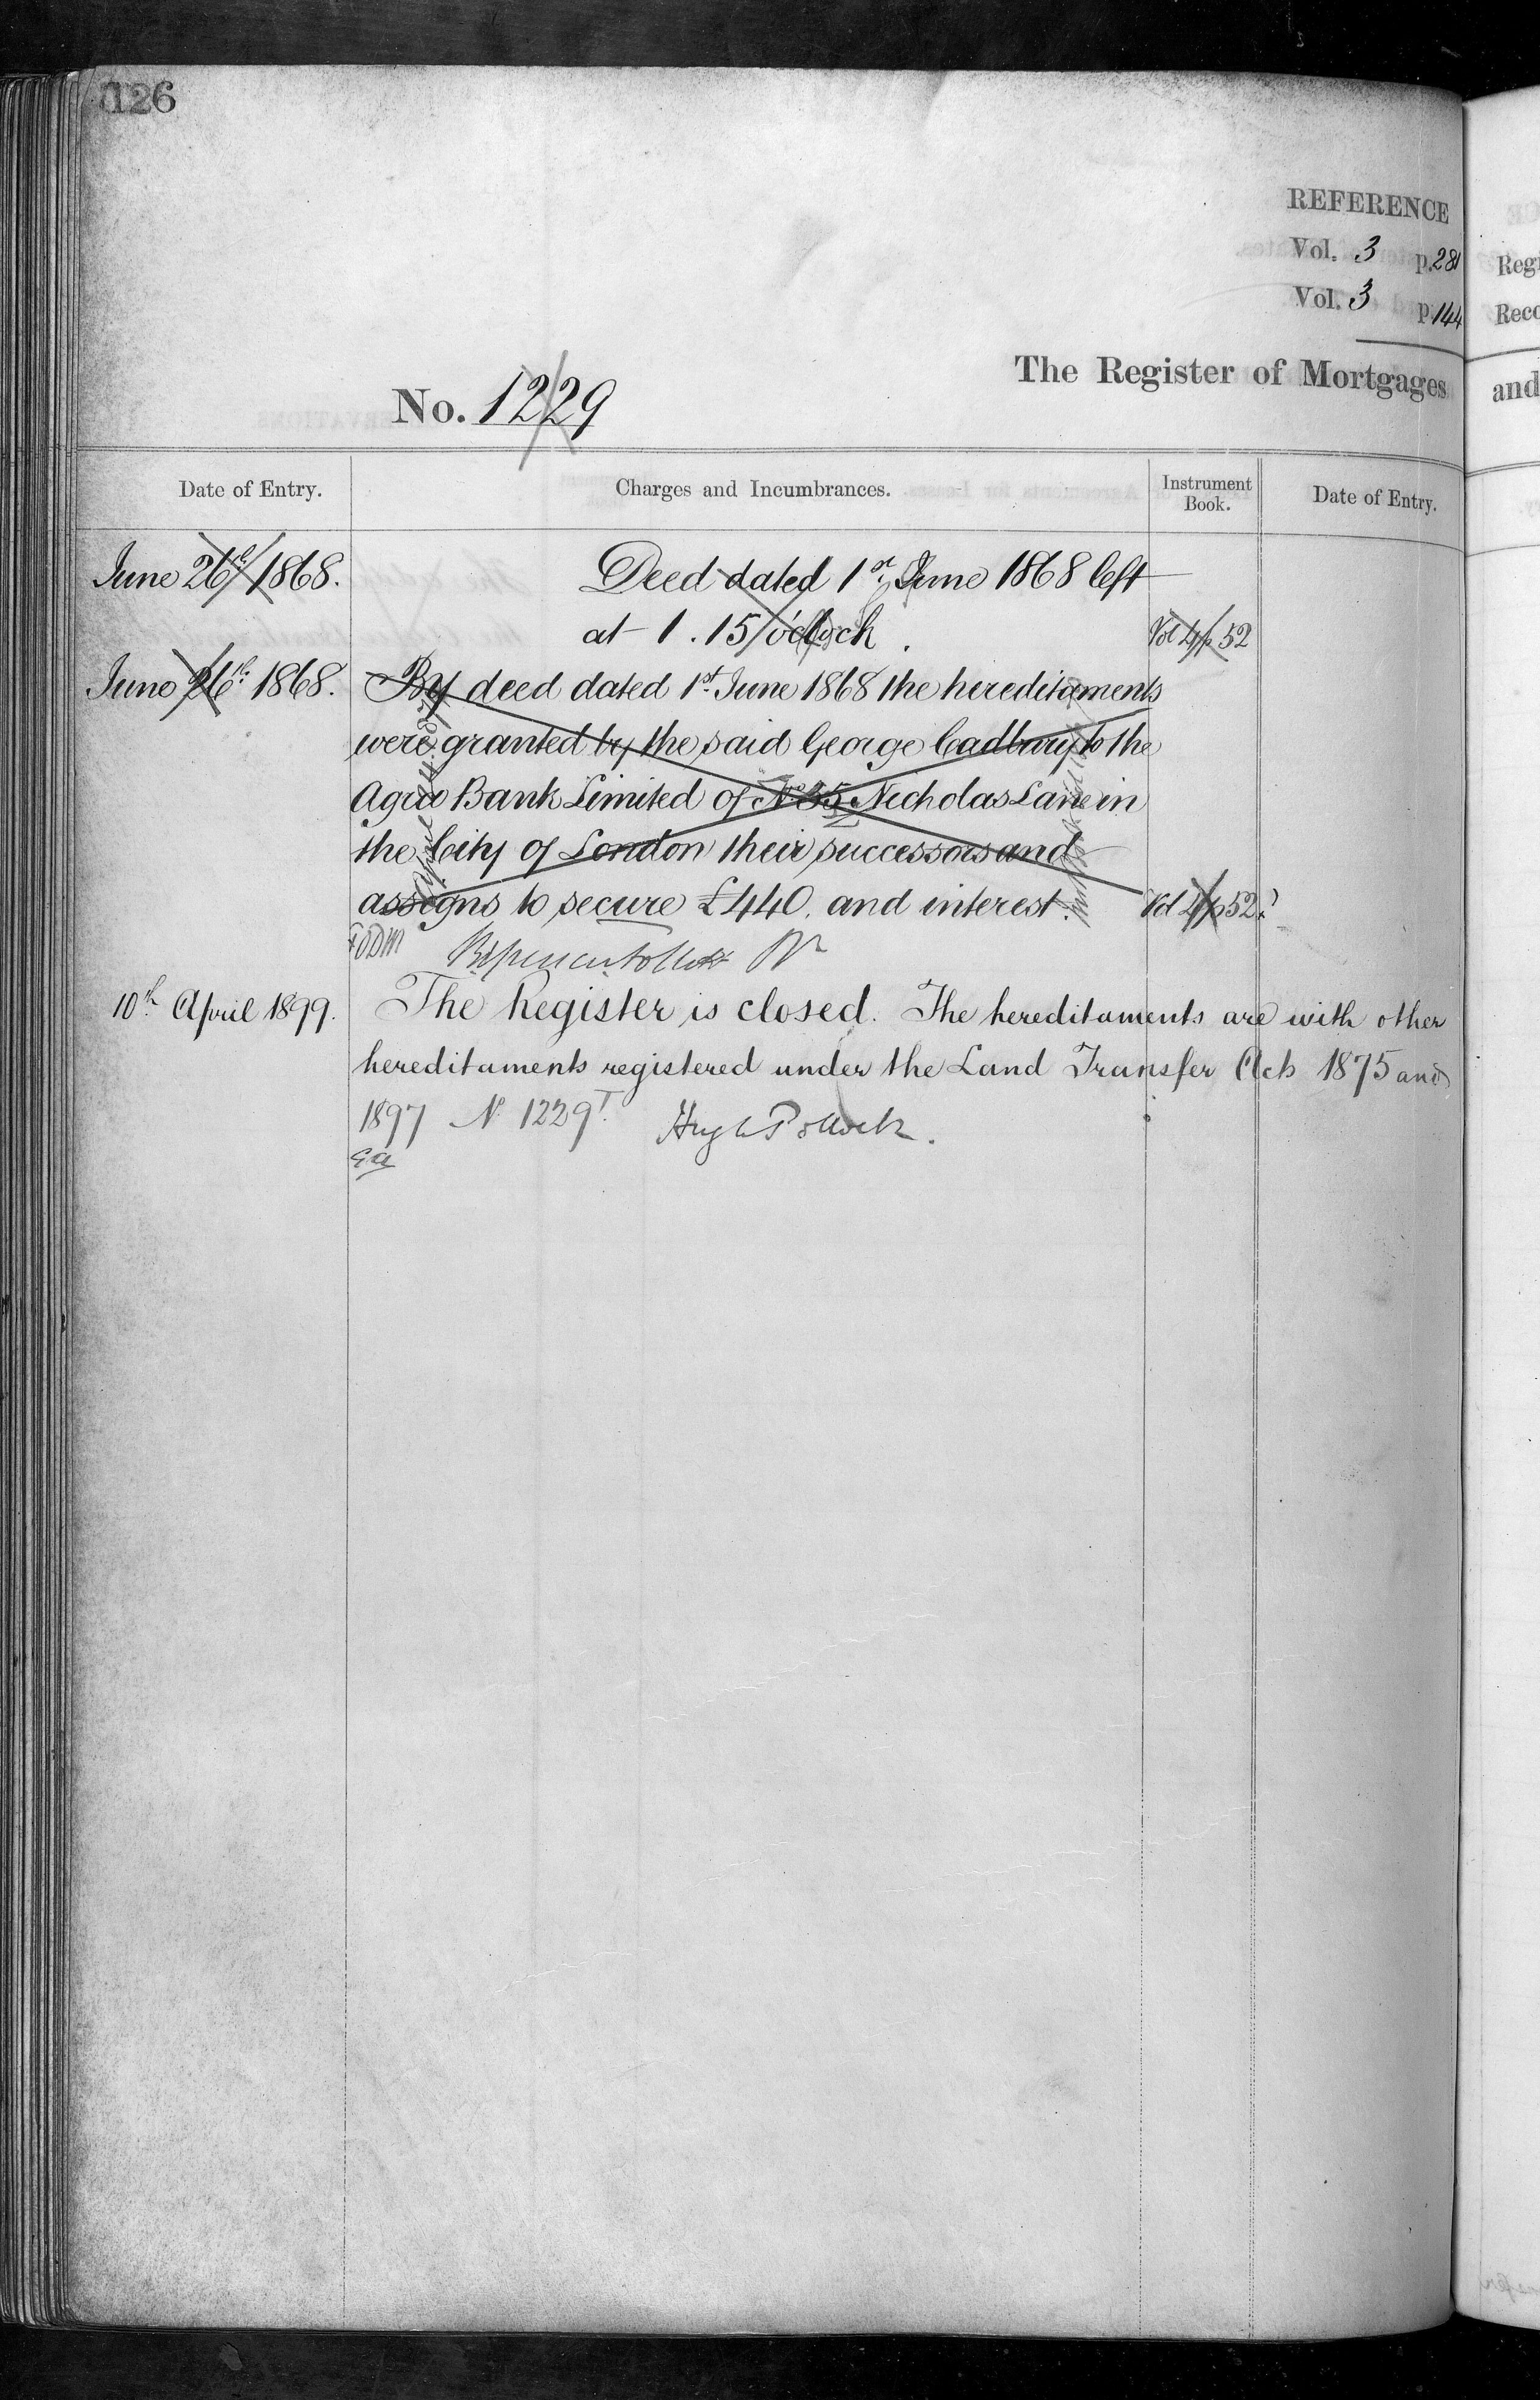 126
REFERENCE
Vol. 3 p. 281
Vol. 3 p. 144
The Register of Mortgages
No. 1229
Date of Entry. Charges and Incumbrances. Instrument Book. Date of Entry.
June 26th 1868. Deed dated 1st June 1868 left
at 1.15 o'clock. Vol 4 p 52
June 26th 1868. By deed dated 1st June 1868 the hereditaments
were granted by the said George Cadbury to the
Agra Bank Limited of No 35 Nicholas Lane in
the City of London their successors and
assigns to secure £440. and interest. Vol 4 p 52.
10th April 1899. The Register is closed. The hereditaments are with other
hereditaments registered under the Land Transfer Acts 1875 and
1897 No 1229T. Hugh Pollock.
Regi
Reco
and